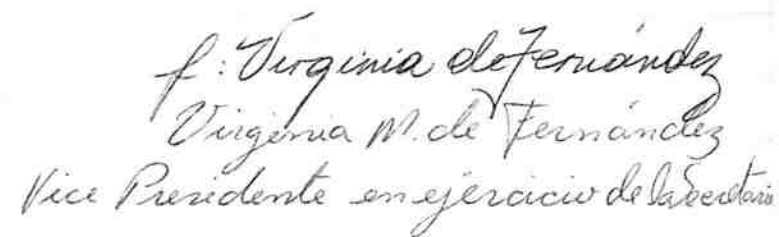 f: Virginia de Fernández
Virginia M. de Fernández
Vice Presidente en ejercicio de la Secretaria